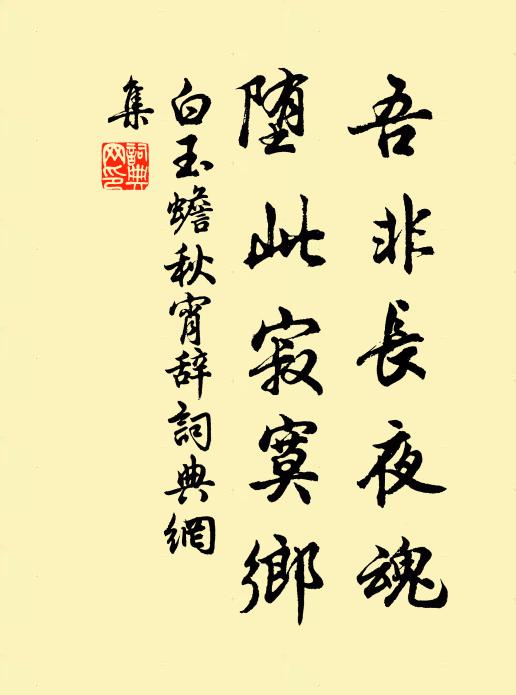 吾非長夜魂
堕此寂寞鄉
白玉蟾秋宵辞詞典網
集
詞典網印